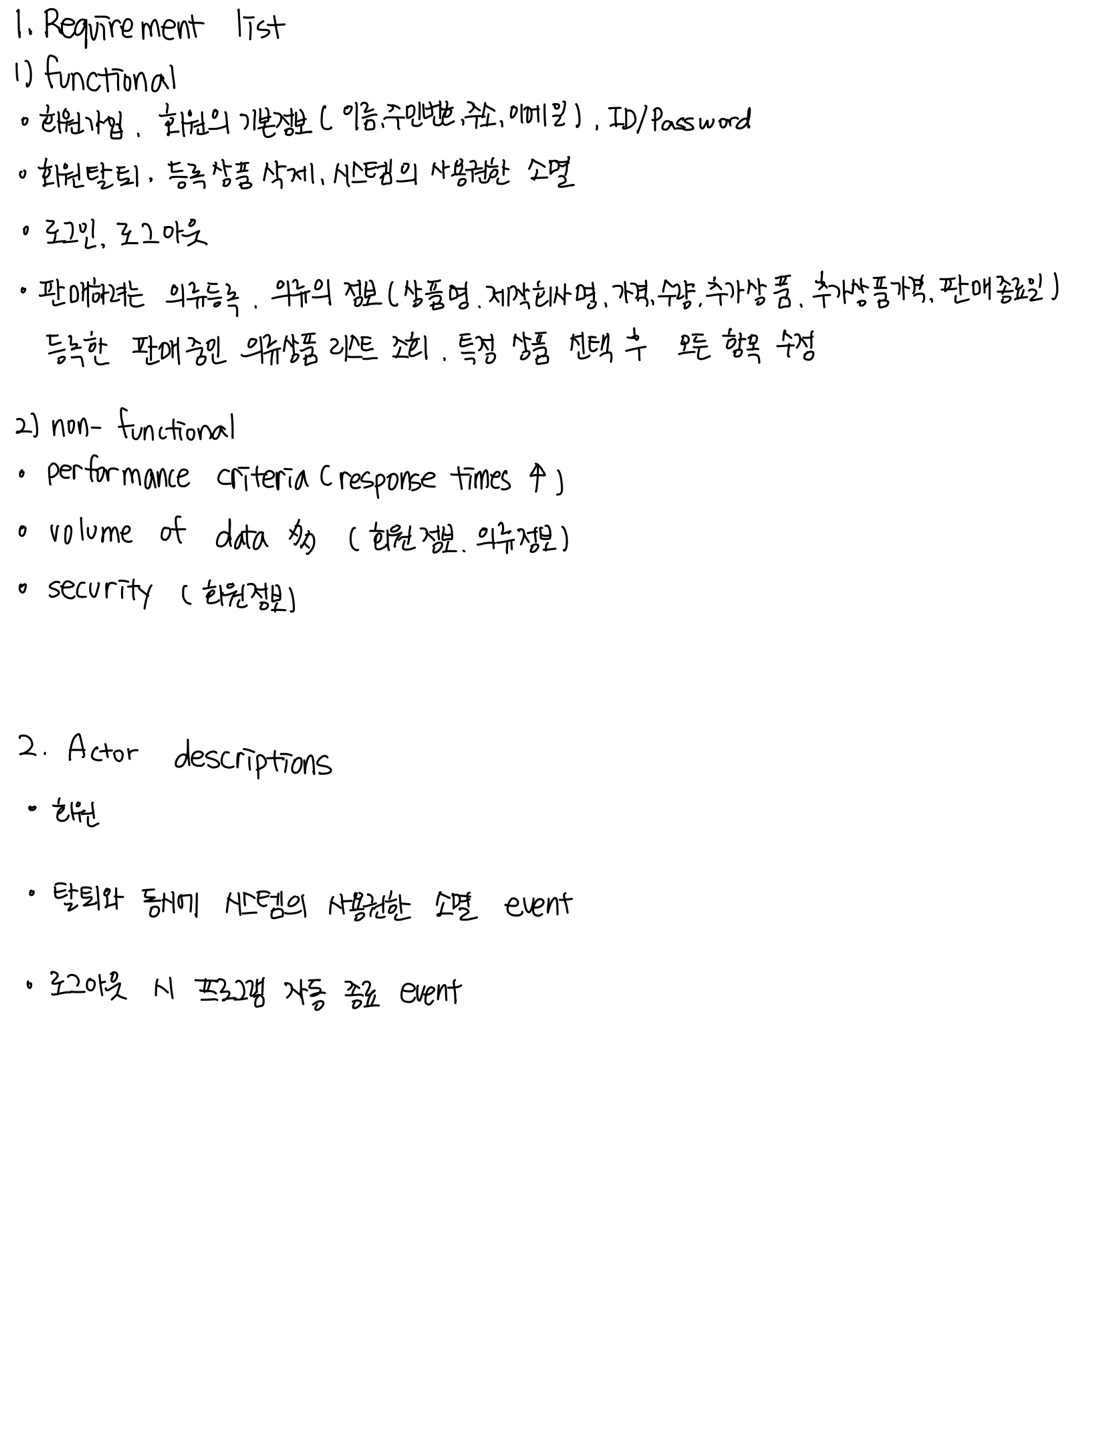 1. Requirement list
1) functional
• 회원가입, 회원의 기본정보(이름,주민번호,주소,이메일), ID/Password
• 회원탈퇴, 등록상품 삭제, 시스템의 사용권한 소멸
• 로그인, 로그아웃
• 판매하려는 의류등록, 의류의 정보(상품명, 제작회사명, 가격, 수량, 추가상품, 추가상품가격, 판매종료일)
등록한 판매중인 의류상품 리스트 조회, 특정 상품 선택 후 모든 항목 수정
2) non-functional
• performance criteria (response times ↑)
• volume of data 多 (회원정보, 의류정보)
• security (회원정보)
2. Actor descriptions
• 회원
• 탈퇴와 동시에 시스템의 사용권한 소멸 event
• 로그아웃 시 프로그램 자동 종료 event